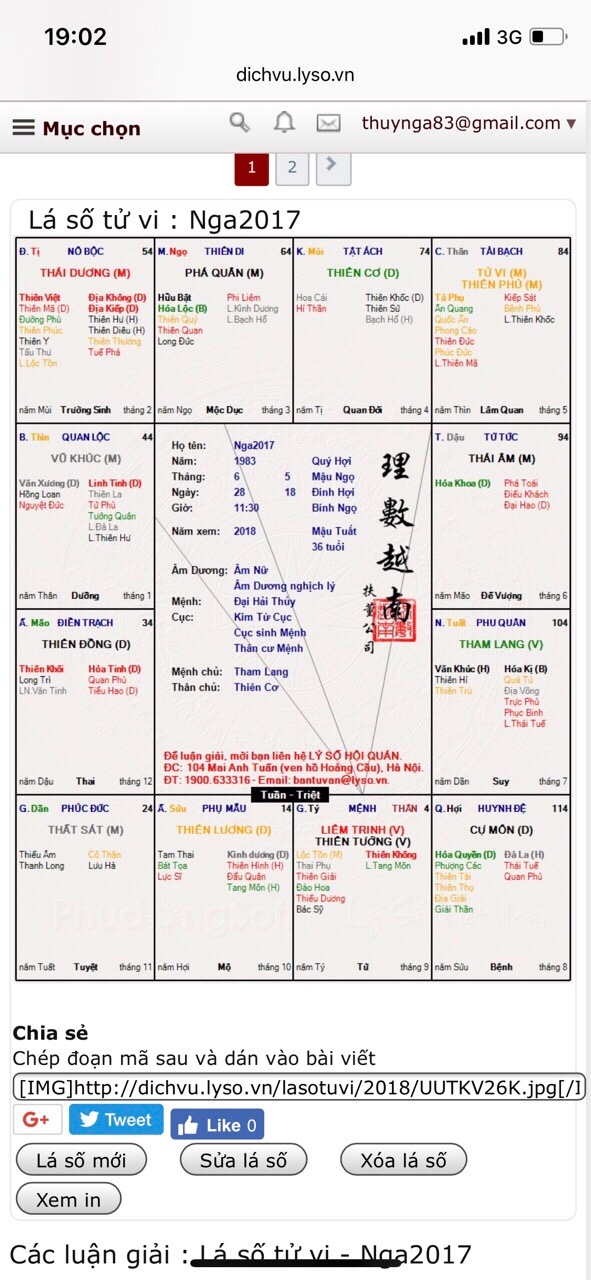 19:02
3G
dichvu.lyso.vn
Mục chọn
thuynga83@gmail.com ▼
1 2 >
Lá số tử vi : Nga2017
Đ. Tị NÔ BỘC 54
THÁI DƯƠNG (M)
Thiên Việt Địa Không (D)
Thiên Mã (D) Địa Kiếp (D)
Đường Phù Thiên Hư (H)
Thiên Phúc Thiên Diêu (H)
Thiên Y Thiên Thương
Tấu Thư Tuế Phá
L.Lộc Tồn
năm Mùi Trường Sinh tháng 2
M. Ngọ THIÊN DI 64
PHÁ QUÂN (M)
Hữu Bật Phi Liêm
Hóa Lộc (B) L.Kình Dương
Thiên Quý L.Bạch Hổ
Thiên Quan
Long Đức
năm Ngọ Mộc Dục tháng 3
K. Mùi TẬT ÁCH 74
THIÊN CƠ (D)
Hoa Cái Thiên Khốc (D)
Hỉ Thần Thiên Sứ
Bạch Hổ (H)
năm Tị Quan Đới tháng 4
C. Thân TÀI BẠCH 84
TỬ VI (M)
THIÊN PHỦ (M)
Tả Phụ Kiếp Sát
Ân Quang Bệnh Phù
Quốc Ấn L.Thiên Khốc
Phong Cáo
Thiên Đức
Phúc Đức
L.Thiên Mã
năm Thìn Lâm Quan tháng 5
B. Thìn QUAN LỘC 44
VŨ KHÚC (M)
Văn Xương (D) Linh Tinh (D)
Hồng Loan Thiên La
Nguyệt Đức Tử Phù
Tướng Quân
L.Đà La
L.Thiên Hư
năm Thân Dưỡng tháng 1
Họ tên: Nga2017
Năm: 1983 Quý Hợi
Tháng: 6 5 Mậu Ngọ
Ngày: 28 18 Đinh Hợi
Giờ: 11:30 Bính Ngọ
Năm xem: 2018 Mậu Tuất
36 tuổi
Âm Dương: Âm Nữ
Âm Dương nghịch lý
Mệnh: Đại Hải Thủy
Cục: Kim Tứ Cục
Cục sinh Mệnh
Thân cư Mệnh
Mệnh chủ: Tham Lang
Thân chủ: Thiên Cơ
理數越南
Để luận giải, mời bạn liên hệ LÝ SỐ HỘI QUÁN.
ĐC: 104 Mai Anh Tuấn (ven hồ Hoàng Cầu), Hà Nội.
ĐT: 1900.633316 - Email: bantuvan@lyso.vn.
T. Dậu TỬ TỨC 94
THÁI ÂM (M)
Hóa Khoa (D) Phá Toái
Điếu Khách
Đại Hao (D)
năm Mão Đế Vượng tháng 6
Ấ. Mão ĐIỀN TRẠCH 34
THIÊN ĐỒNG (D)
Thiên Khôi Hỏa Tinh (D)
Long Trì Quan Phù
LN.Văn Tinh Tiểu Hao (D)
năm Dậu Thai tháng 12
N. Tuất PHU QUÂN 104
THAM LANG (V)
Văn Khúc (H) Hóa Kị (B)
Thiên Hỉ Quả Tú
Thiên Trù Địa Võng
Trực Phù
Phục Binh
L.Thái Tuế
năm Dần Suy tháng 7
Tuần - Triệt
G. Dần PHÚC ĐỨC 24
THẤT SÁT (M)
Thiếu Âm Cô Thần
Thanh Long Lưu Hà
năm Tuất Tuyệt tháng 11
Ấ. Sửu PHỤ MẪU 14
THIÊN LƯƠNG (D)
Tam Thai Kình dương (D)
Bát Tọa Thiên Hình (H)
Lực Sĩ Đẩu Quân
Tang Môn (H)
năm Hợi Mộ tháng 10
G.Tý MỆNH THÂN 4
LIÊM TRINH (V)
THIÊN TƯỚNG (V)
Lộc Tồn (M) Thiên Không
Thai Phụ L.Tang Môn
Thiên Giải
Đào Hoa
Thiếu Dương
Bác Sỹ
năm Tý Tử tháng 9
Q. Hợi HUYNH ĐỆ 114
CỰ MÔN (D)
Hóa Quyền (D) Đà La (H)
Phượng Các Thái Tuế
Thiên Tài Quan Phủ
Thiên Thọ
Địa Giải
Giải Thần
năm Sửu Bệnh tháng 8
Chia sẻ
Chép đoạn mã sau và dán vào bài viết
[IMG]http://dichvu.lyso.vn/lasotuvi/2018/UUTKV26K.jpg[/I
G+ Tweet Like 0
Lá số mới Sửa lá số Xóa lá số
Xem in
Các luận giải : Lá số tử vi - Nga2017